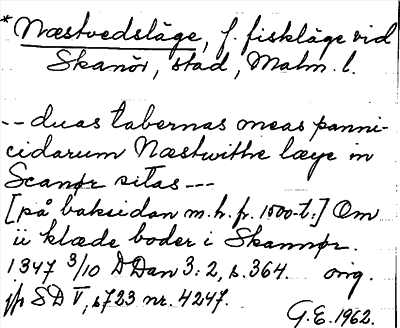 *Næstvedsläge, f. fiskläge vid
Skanör, stad, Malm. l.
-- duas tabernas meas panni-
cidarum Næstwithe læye in
Scanør sitas ---
[på baksidan m. h. fr. 1500-t:] Om
ii klæde boder i Skannør.
1347 3/10 DDan 3:2, s. 364. orig.
jfr SD V, s 723 nr. 4247.
G.E. 1962.